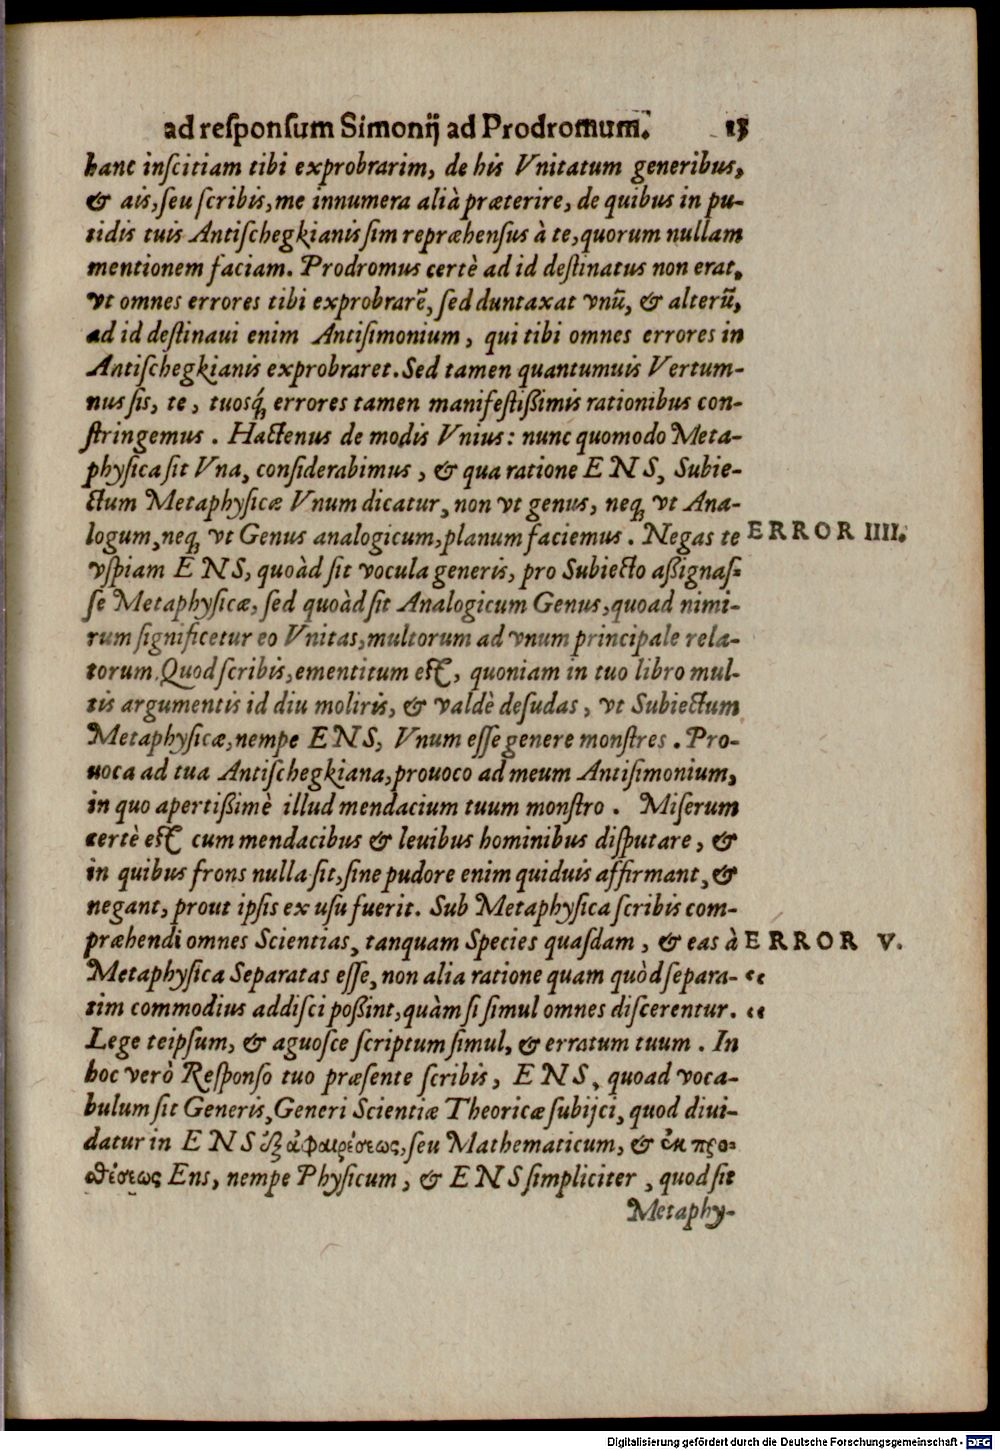 ad reſponſum Simonij ad Prodromum. 13
hanc inſcitiam tibi exprobrarim, de his Vnitatum generibus,
& ais, ſeu ſcribis, me innumera alià præterire, de quibus in pu-
tidis tuis Antiſchegkianis ſim repræhenſus à te, quorum nullam
mentionem faciam. Prodromus certè ad id deſtinatus non erat,
vt omnes errores tibi exprobrarē, ſed duntaxat vnū, & alterū,
ad id deſtinaui enim Antiſimonium, qui tibi omnes errores in
Antiſchegkianis exprobraret. Sed tamen quantumuis Vertum-
nus ſis, te, tuosq́ errores tamen manifeſtißimis rationibus con-
ſtringemus. Hactenus de modis Vnius: nunc quomodo Meta-
phyſica ſit Vna, conſiderabimus, & qua ratione ENS, Subie-
ctum Metaphyſicæ Vnum dicatur, non vt genus, neq; vt Ana-
logum, neq; vt Genus analogicum, planum faciemus. Negas te
ERROR IIII.
vſpiam ENS, quoàd ſit vocula generis, pro Subiecto aßignaſ-
ſe Metaphyſicæ, ſed quoàd ſit Analogicum Genus, quoad nimi-
rum ſignificetur eo Vnitas, multorum ad vnum principale rela-
torum. Quod ſcribis, ementitum eſt, quoniam in tuo libro mul-
tis argumentis id diu moliris, & valdè deſudas, vt Subiectum
Metaphyſicæ, nempe ENS, Vnum eſſe genere monſtres. Pro-
uoca ad tua Antiſchegkiana, prouoco ad meum Antiſimonium,
in quo apertißimè illud mendacium tuum monſtro. Miſerum
certè eſt cum mendacibus & leuibus hominibus diſputare, &
in quibus frons nulla ſit, ſine pudore enim quiduis affirmant, &
negant, prout ipſis ex uſu fuerit. Sub Metaphyſica ſcribis com-
præhendi omnes Scientias, tanquam Species quaſdam, & eas à
ERROR V.
Metaphyſica Separatas eſſe, non alia ratione quam quòd ſepara- “
tim commodius addiſci poßint, quàm ſi ſimul omnes diſcerentur. “
Lege teipſum, & agnoſce ſcriptum ſimul, & erratum tuum. In
hoc verò Reſponſo tuo præſente ſcribis, ENS, quoad voca-
bulum ſit Generis, Generi Scientiæ Theoricæ ſubijci, quod diui-
datur in ENS ἐξ ἀφαιρέσεως, ſeu Mathematicum, & ἐκ προ-
σθέσεως Ens, nempe Phyſicum, & ENS ſimpliciter, quod ſit
Metaphy-
Digitalisierung gefördert durch die Deutsche Forschungsgemeinschaft - DFG